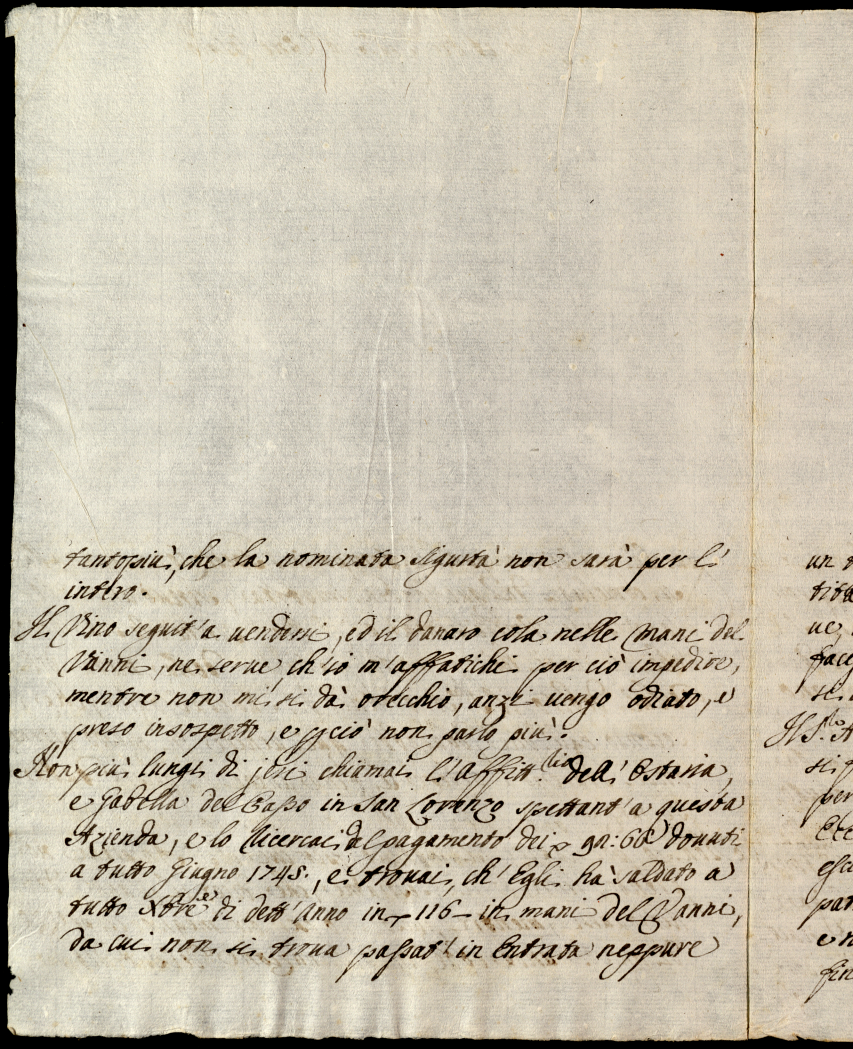 tantopiù, che la nominata sigurtà non sarà per l'
intero.
Il Vino seguit'a vendersi, ed il danaro cola nelle mani del
Vanni, ne serve, ch'io m'affatichi per ciò impedire,
mentre non mi si dà orecchio, anzi vengo odiato, e
preso in sospetto, e pciò non parlo più.
Non più lungi di jeri chiamai l'Affitt.rio dell'Ostaria,
e Gabella del Passo in San Lorenzo spettant'a questa
Azienda, e lo ricercai del pagamento dei 92:66 dovuti
a tutto Giugno 1745., e trovai, ch'Egli ha saldato a
tutto Xbre di dett'anno in 116 in mani del Vanni,
da cui non si trova passat' in Entrata neppure
un
ve,
si
Il S.r
si
per
e
fin